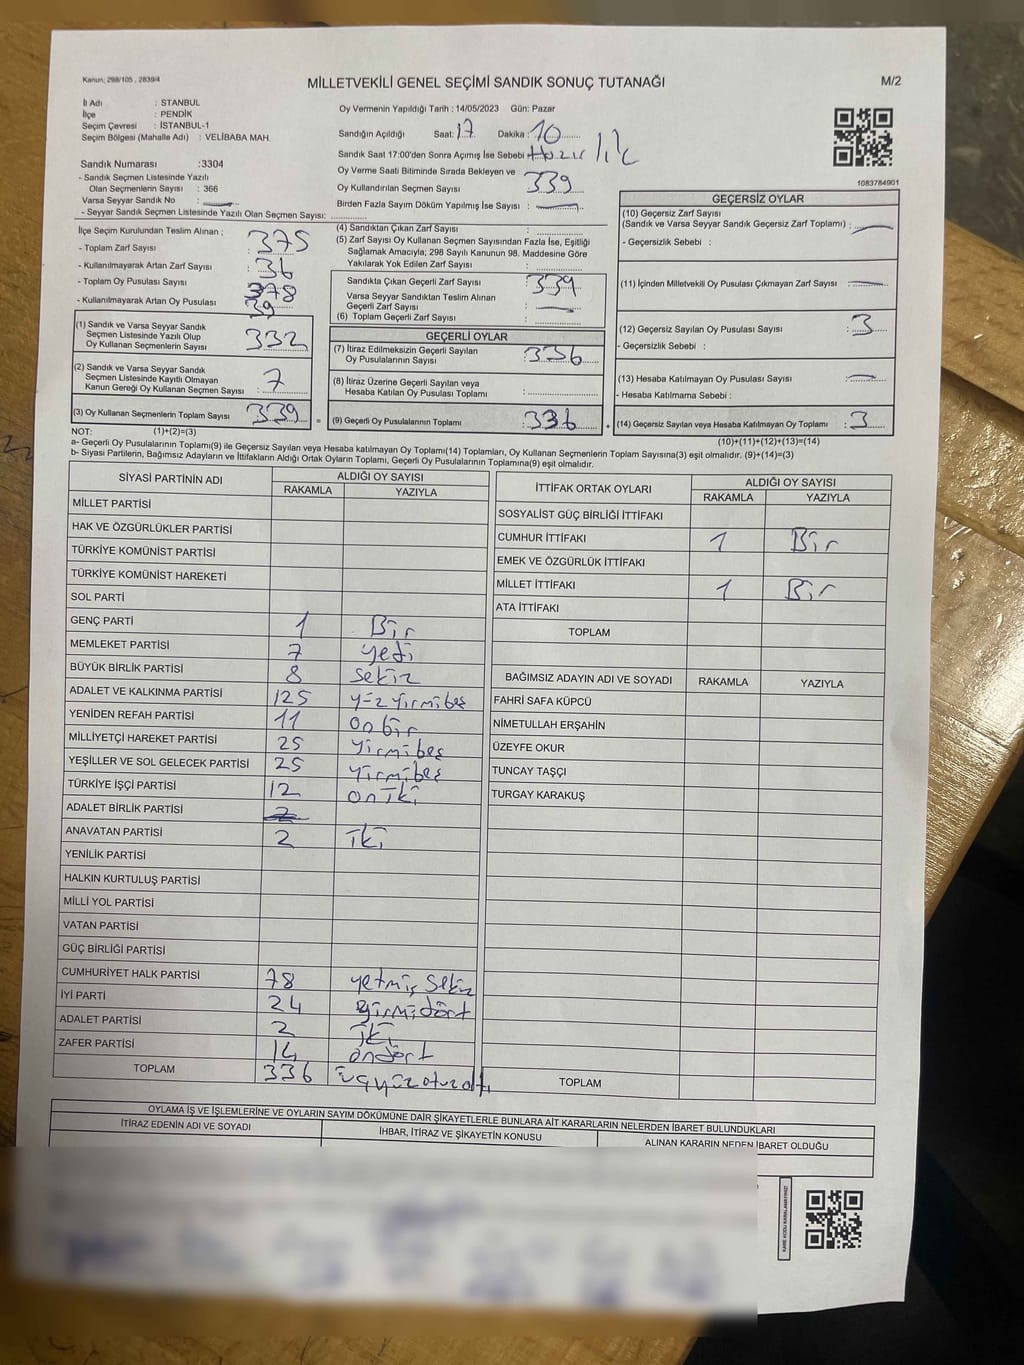 Kanun, 298/105 , 2839/4
MİLLETVEKİLİ GENEL SEÇİMİ SANDIK SONUÇ TUTANAĞI
M/2
İl Adı : STANBUL
İlçe : PENDİK
Seçim Çevresi : İSTANBUL-1
Seçim Bölgesi (Mahalle Adı) : VELİBABA MAH.
Sandık Numarası :3304
- Sandık Seçmen Listesinde Yazılı
Olan Seçmenlerin Sayısı : 366
Varsa Seyyar Sandık No :
- Seyyar Sandık Seçmen Listesinde Yazılı Olan Seçmen Sayısı:
Oy Vermenin Yapıldığı Tarih : 14/05/2023 Gün: Pazar
Sandığın Açıldığı Saat: 17 Dakika : 10
Sandık Saat 17:00'den Sonra Açımış İse Sebebi Hazırlık
Oy Verme Saati Bitiminde Sırada Bekleyen ve
Oy Kullandırılan Seçmen Sayısı 339
Birden Fazla Sayım Döküm Yapılmış İse Sayısı :
1083784901
İlçe Seçim Kurulundan Teslim Alınan ;
- Toplam Zarf Sayısı : 375
- Kullanılmayarak Artan Zarf Sayısı : 36
- Toplam Oy Pusulası Sayısı : 378
- Kullanılmayarak Artan Oy Pusulası : 39
(1) Sandık ve Varsa Seyyar Sandık
Seçmen Listesinde Yazılı Olup
Oy Kullanan Seçmenlerin Sayısı : 332
(2) Sandık ve Varsa Seyyar Sandık
Seçmen Listesinde Kayıtlı Olmayan
Kanun Gereği Oy Kullanan Seçmen Sayısı : 7
(3) Oy Kullanan Seçmenlerin Toplam Sayısı : 339
(4) Sandıktan Çıkan Zarf Sayısı :
(5) Zarf Sayısı Oy Kullanan Seçmen Sayısından Fazla İse, Eşitliği
Sağlamak Amacıyla; 298 Sayılı Kanunun 98. Maddesine Göre
Yakılarak Yok Edilen Zarf Sayısı :
Sandıkta Çıkan Geçerli Zarf Sayısı : 339
Varsa Seyyar Sandıktan Teslim Alınan
Geçerli Zarf Sayısı :
(6) Toplam Geçerli Zarf Sayısı :
GEÇERLİ OYLAR
(7) İtiraz Edilmeksizin Geçerli Sayılan
Oy Pusulalarının Sayısı : 336
(8) İtiraz Üzerine Geçerli Sayılan veya
Hesaba Katılan Oy Pusulası Toplamı :
= (9) Geçerli Oy Pusulalarının Toplamı : 336
GEÇERSİZ OYLAR
(10) Geçersiz Zarf Sayısı
(Sandık ve Varsa Seyyar Sandık Geçersiz Zarf Toplamı) :
- Geçersizlik Sebebi :
(11) İçinden Milletvekili Oy Pusulası Çıkmayan Zarf Sayısı :
(12) Geçersiz Sayılan Oy Pusulası Sayısı : 3
- Geçersizlik Sebebi :
(13) Hesaba Katılmayan Oy Pusulası Sayısı :
- Hesaba Katılmama Sebebi :
+ (14) Geçersiz Sayılan veya Hesaba Katılmayan Oy Toplamı : 3
NOT: (1)+(2)=(3)
(10)+(11)+(12)+(13)=(14)
a- Geçerli Oy Pusulalarının Toplamı(9) ile Geçersiz Sayılan veya Hesaba katılmayan Oy Toplamı(14) Toplamları, Oy Kullanan Seçmenlerin Toplam Sayısına(3) eşit olmalıdır. (9)+(14)=(3)
b- Siyasi Partilerin, Bağımsız Adayların ve İttifakların Aldığı Ortak Oyların Toplamı, Geçerli Oy Pusulalarının Toplamına(9) eşit olmalıdır.
SİYASİ PARTİNİN ADI ALDIĞI OY SAYISI
RAKAMLA YAZIYLA
MİLLET PARTİSİ
HAK VE ÖZGÜRLÜKLER PARTİSİ
TÜRKİYE KOMÜNİST PARTİSİ
TÜRKİYE KOMÜNİST HAREKETİ
SOL PARTİ
GENÇ PARTİ 1 Bir
MEMLEKET PARTİSİ 7 yedi
BÜYÜK BİRLİK PARTİSİ 8 sekiz
ADALET VE KALKINMA PARTİSİ 125 yüz yirmibeş
YENİDEN REFAH PARTİSİ 11 onbir
MİLLİYETÇİ HAREKET PARTİSİ 25 yirmibeş
YEŞİLLER VE SOL GELECEK PARTİSİ 25 yirmibeş
TÜRKİYE İŞÇİ PARTİSİ 12 oniki
ADALET BİRLİK PARTİSİ
ANAVATAN PARTİSİ 2 iki
YENİLİK PARTİSİ
HALKIN KURTULUŞ PARTİSİ
MİLLİ YOL PARTİSİ
VATAN PARTİSİ
GÜÇ BİRLİĞİ PARTİSİ
CUMHURİYET HALK PARTİSİ 78 yetmiş sekiz
İYİ PARTİ 24 yirmidört
ADALET PARTİSİ 2 iki
ZAFER PARTİSİ 14 ondört
TOPLAM 336 üçyüzotuzaltı
İTTİFAK ORTAK OYLARI ALDIĞI OY SAYISI
RAKAMLA YAZIYLA
SOSYALİST GÜÇ BİRLİĞİ İTTİFAKI
CUMHUR İTTİFAKI 1 Bir
EMEK VE ÖZGÜRLÜK İTTİFAKI
MİLLET İTTİFAKI 1 Bir
ATA İTTİFAKI
TOPLAM
BAĞIMSIZ ADAYIN ADI VE SOYADI RAKAMLA YAZIYLA
FAHRİ SAFA KÜPCÜ
NİMETULLAH ERŞAHİN
ÜZEYFE OKUR
TUNCAY TAŞÇI
TURGAY KARAKUŞ
TOPLAM
OYLAMA İŞ VE İŞLEMLERİNE VE OYLARIN SAYIM DÖKÜMÜNE DAİR ŞİKAYETLERLE BUNLARA AİT KARARLARIN NELERDEN İBARET BULUNDUKLARI
İTİRAZ EDENİN ADI VE SOYADI İHBAR, İTİRAZ VE ŞİKAYETİN KONUSU ALINAN KARARIN NEDEN İBARET OLDUĞU